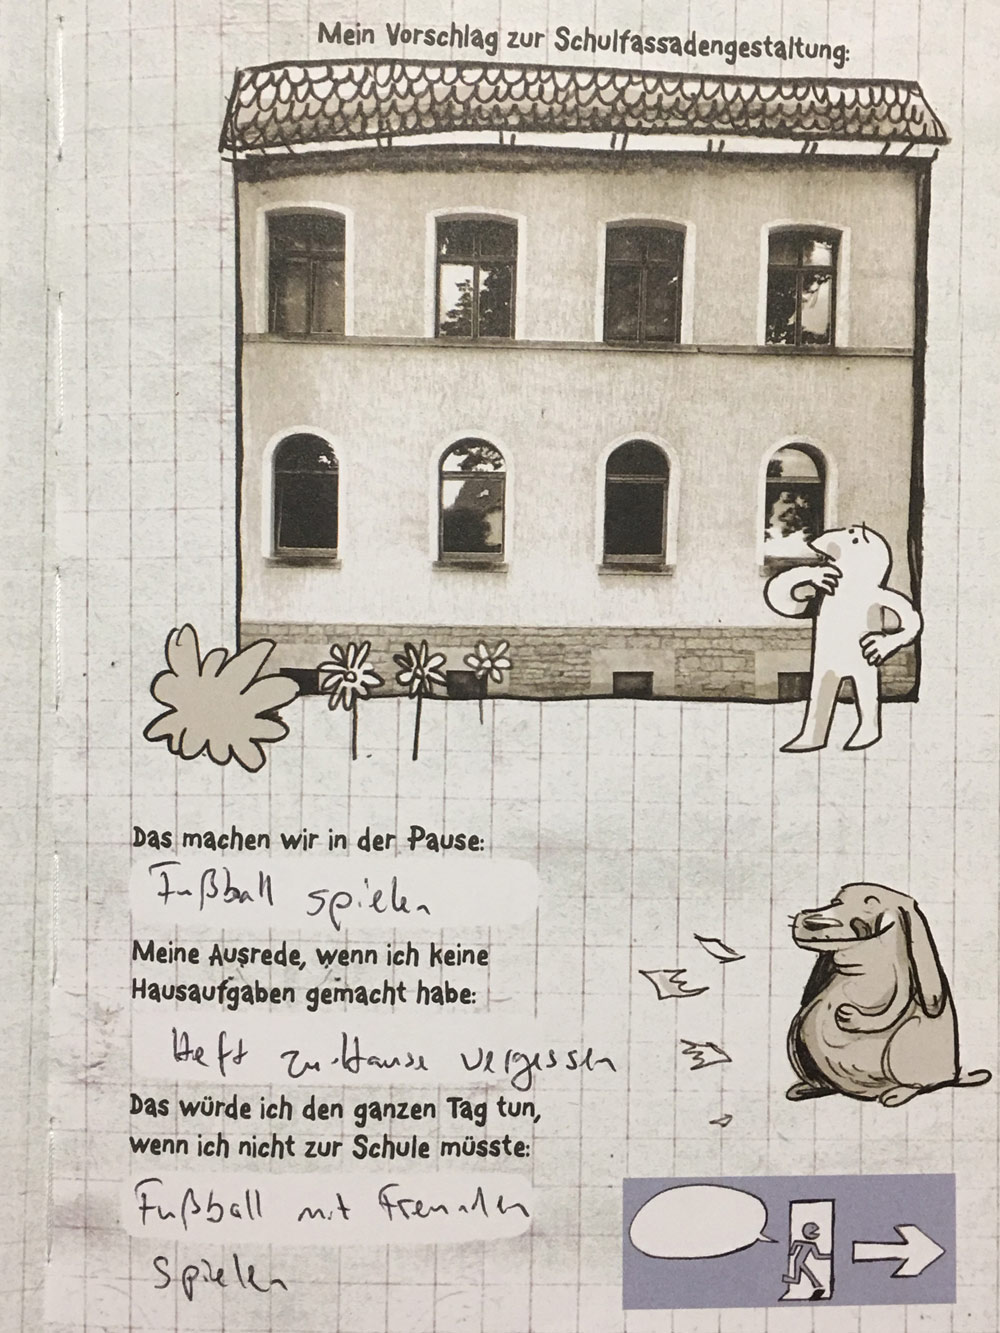 Mein Vorschlag zur Schulfassadengestaltung:
Das machen wir in der Pause:
Fußball spielen
Meine Ausrede, wenn ich keine
Hausaufgaben gemacht habe:
Heft zu Hause vergessen
Das würde ich den ganzen Tag tun,
wenn ich nicht zur Schule müsste:
Fußball mit Freunden
spielen